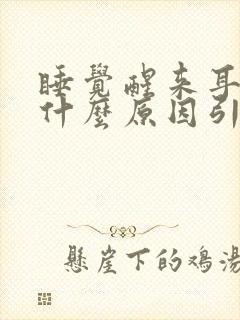 睡覺醒来耳
什麼原因引
懸崖下的鸡湯